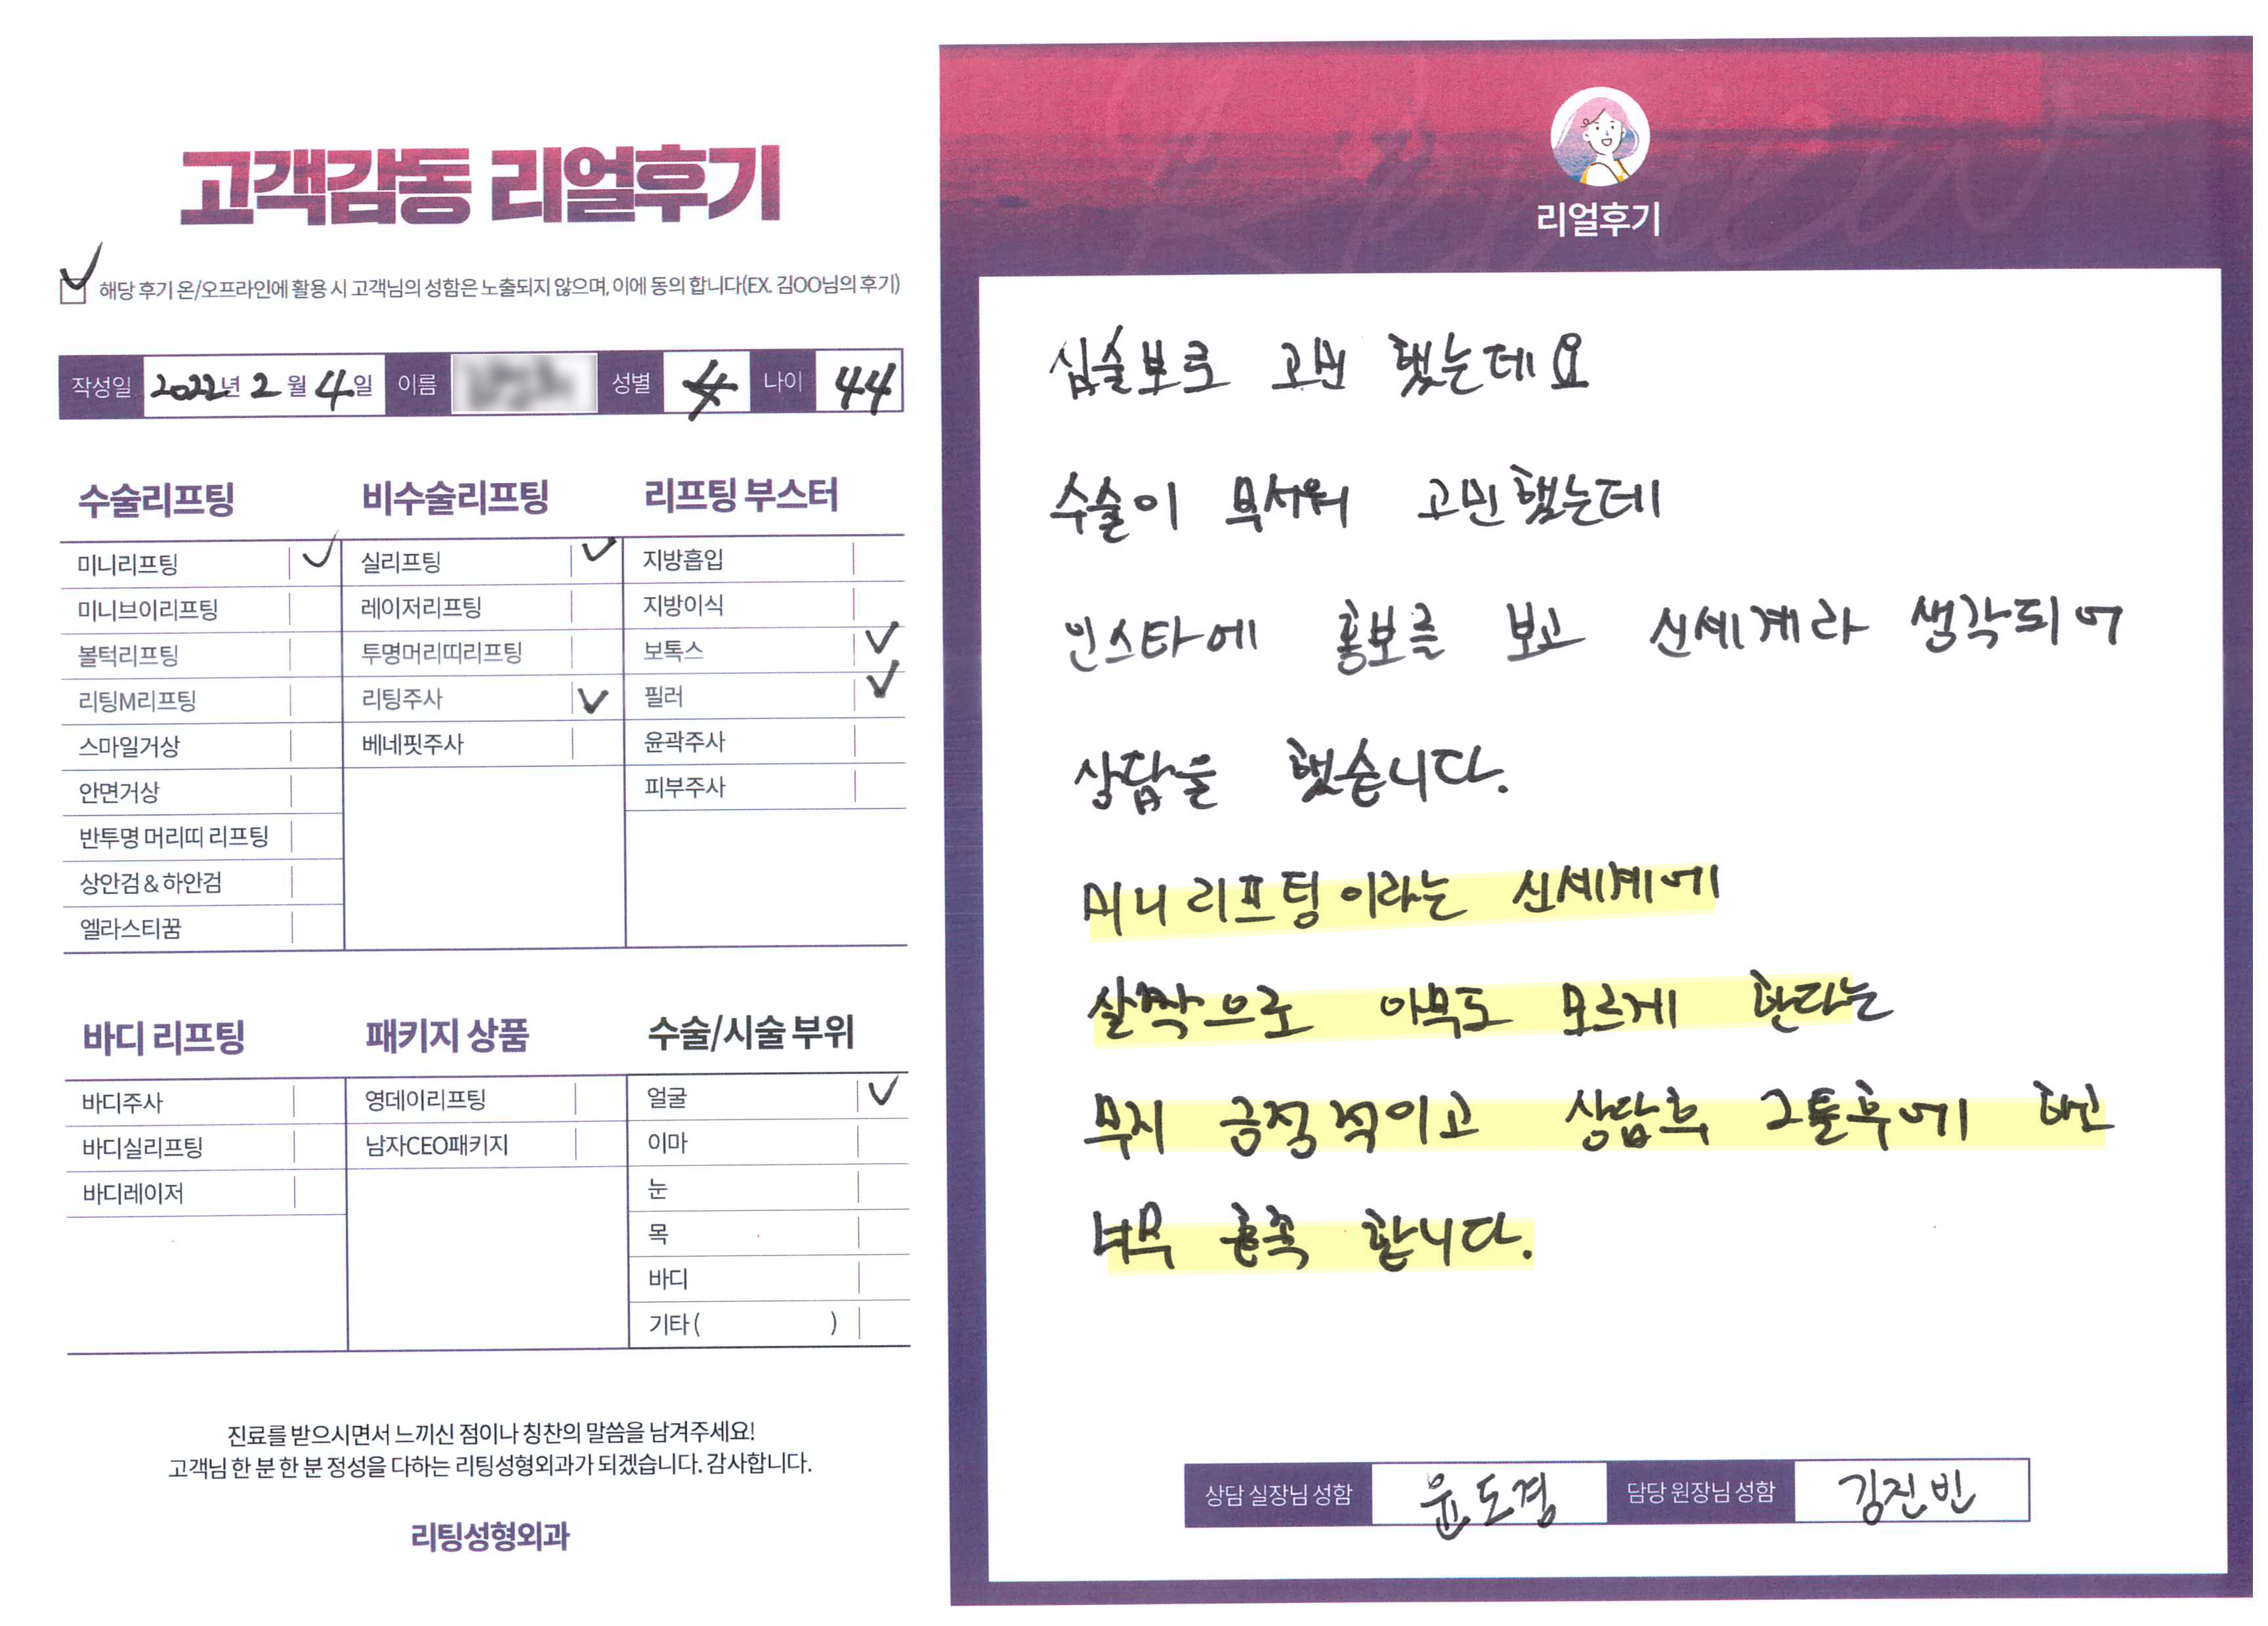 고객감동 리얼후기
해당 후기 온/오프라인에 활용 시 고객님의 성함은 노출되지 않으며, 이에 동의 합니다(EX. 김OO님의 후기)
작성일 2022년 2월 4일 이름 성별 나이 44
수술리프팅
미니리프팅
미니브이리프팅
볼턱리프팅
리팅M리프팅
스마일거상
안면거상
반투명 머리띠 리프팅
상안검 & 하안검
엘라스티꿈
비수술리프팅
실리프팅
레이저리프팅
투명머리띠리프팅
리팅주사
베네핏주사
리프팅 부스터
지방흡입
지방이식
보톡스
필러
윤곽주사
피부주사
바디 리프팅
바디주사
바디실리프팅
바디레이저
패키지 상품
영데이리프팅
남자CEO패키지
수술/시술 부위
얼굴
이마
눈
목
바디
기타 ( )
진료를 받으시면서 느끼신 점이나 칭찬의 말씀을 남겨주세요!
고객님 한 분 한 분 정성을 다하는 리팅성형외과가 되겠습니다. 감사합니다.
리팅성형외과
리얼후기
심술보로 고민 했는데요
수술이 무서워 고민했는데
인스타에 홍보를 보고 신세계라 생각되어
상담을 했습니다.
미니리프팅이라는 신세계에
살짝으로 아무도 모르게 한다는
무지 긍정적이고 상담후 그 후에
너무 만족 합니다.
상담 실장님 성함 윤도경 담당 원장님 성함 김진빈